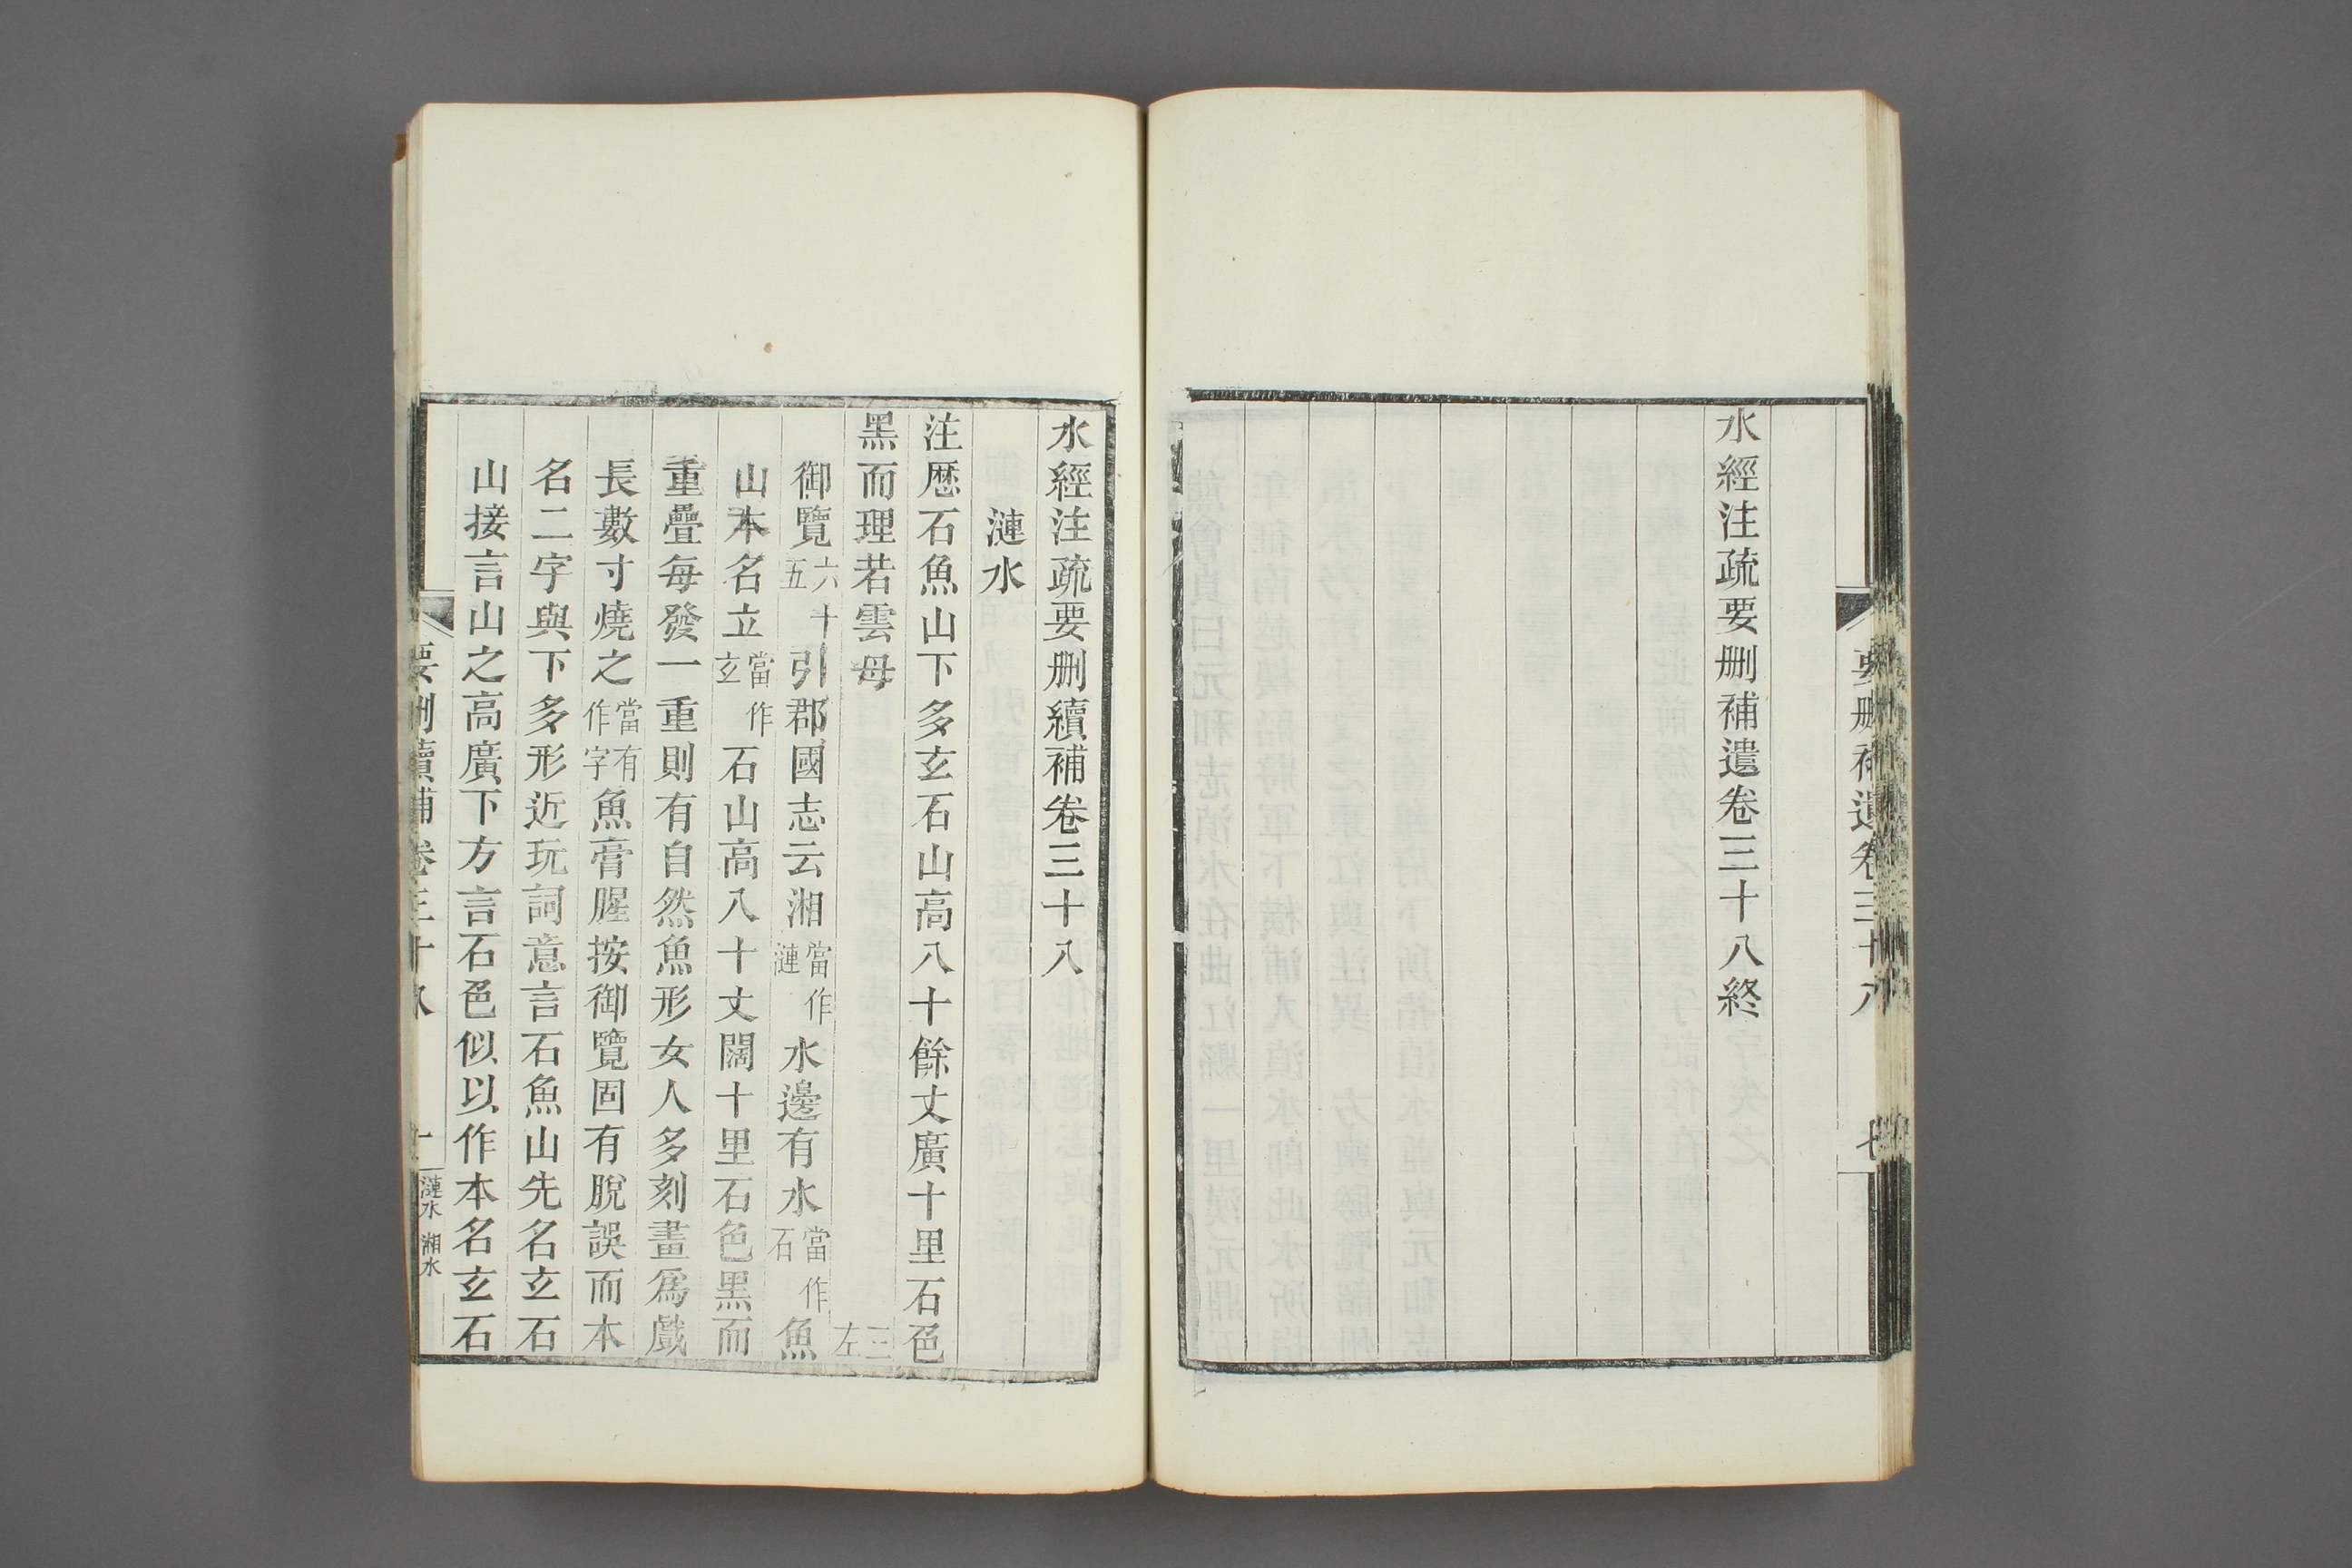 水經注疏要刪補遺卷三十八終
水經注疏要刪續補卷三十八
漣水
注歷石魚山下多玄石山高八十餘丈廣十里石色
黑而理若雲母三左
御覽六十五引郡國志云湘當作漣水邊有水當作石魚
山本名立當作玄石山高八十丈闊十里石色黑而
重疊每發一重則有自然魚形女人多刻畫爲戲
長數寸燒之當有作字魚膏腥按御覽固有脫誤而本
名二字與下多形近玩詞意言石魚山先名玄石
山接言山之高廣下方言石色似以作本名玄石
要刪續補卷三十八
漣水 湘水